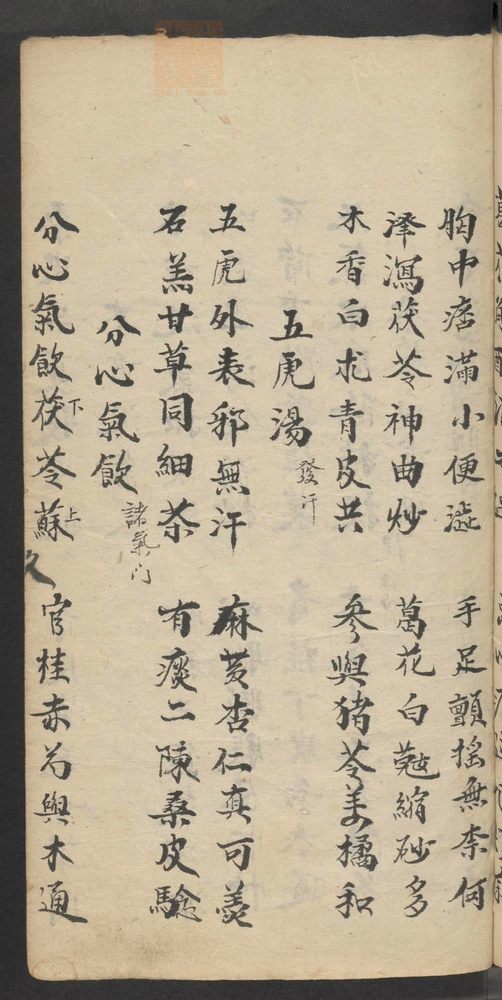 胸中痞滿小便澁 手足顫搖無柰何
泽瀉茯苓神曲炒 葛花白蔻縮砂多
木香白朮青皮共 參與猪苓姜橘和
五虎湯 發汗
五虎外表邪無汗 麻黄杏仁真可羡
石羔甘草同細茶 有痰二陳桑皮驗
分心氣飲 諸氣门
分心氣飲茯下苓蘇上 官桂赤芍與木通